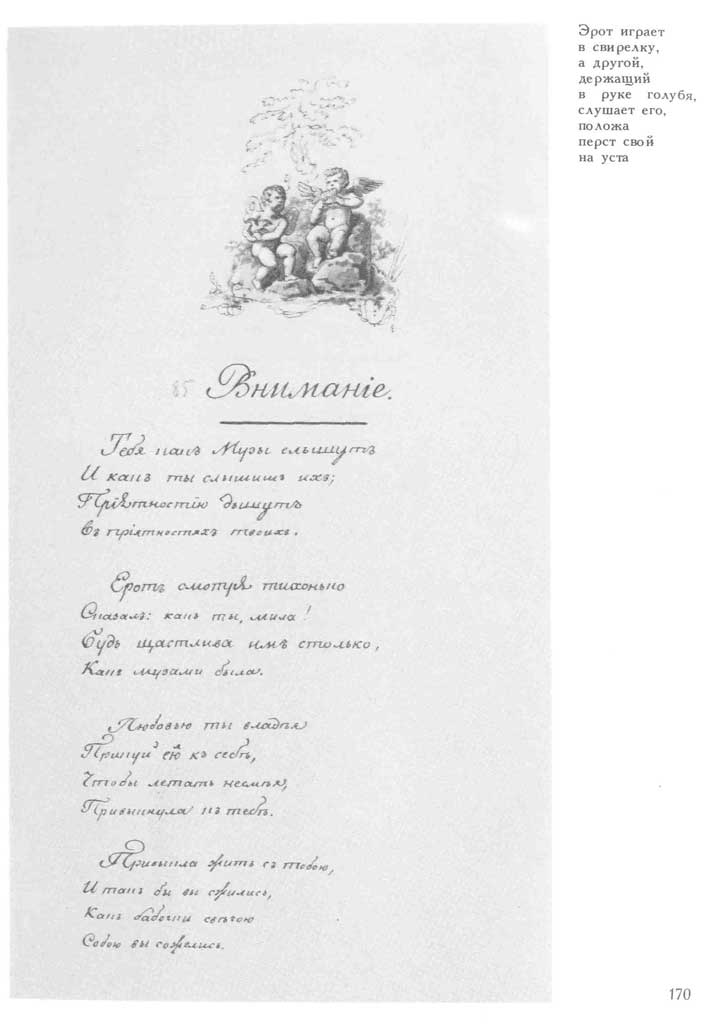 Эрот играет
в свирелку,
а другой,
держащий
в руке голубя,
слушает его,
положа
перст свой
на уста
85 Вниманіе.
Тебя какъ Музы слышутъ
И какъ ты слышишь ихъ;
Пріятностію дышутъ
Въ пріятностяхъ твоихъ.
Еротъ смотря тихонько
Сказалъ: какъ ты, мила!
Будь щастлива имъ столько,
Какъ музами была.
Любовью ты владѣя
къ себѣ,
Чтобы летать несмѣя,
Привыкнула къ тебѣ.
Привыкла жить съ тобою,
И такъ бы вы сжились,
Какъ бабочки свѣчою
Собою вы сожглись.
170